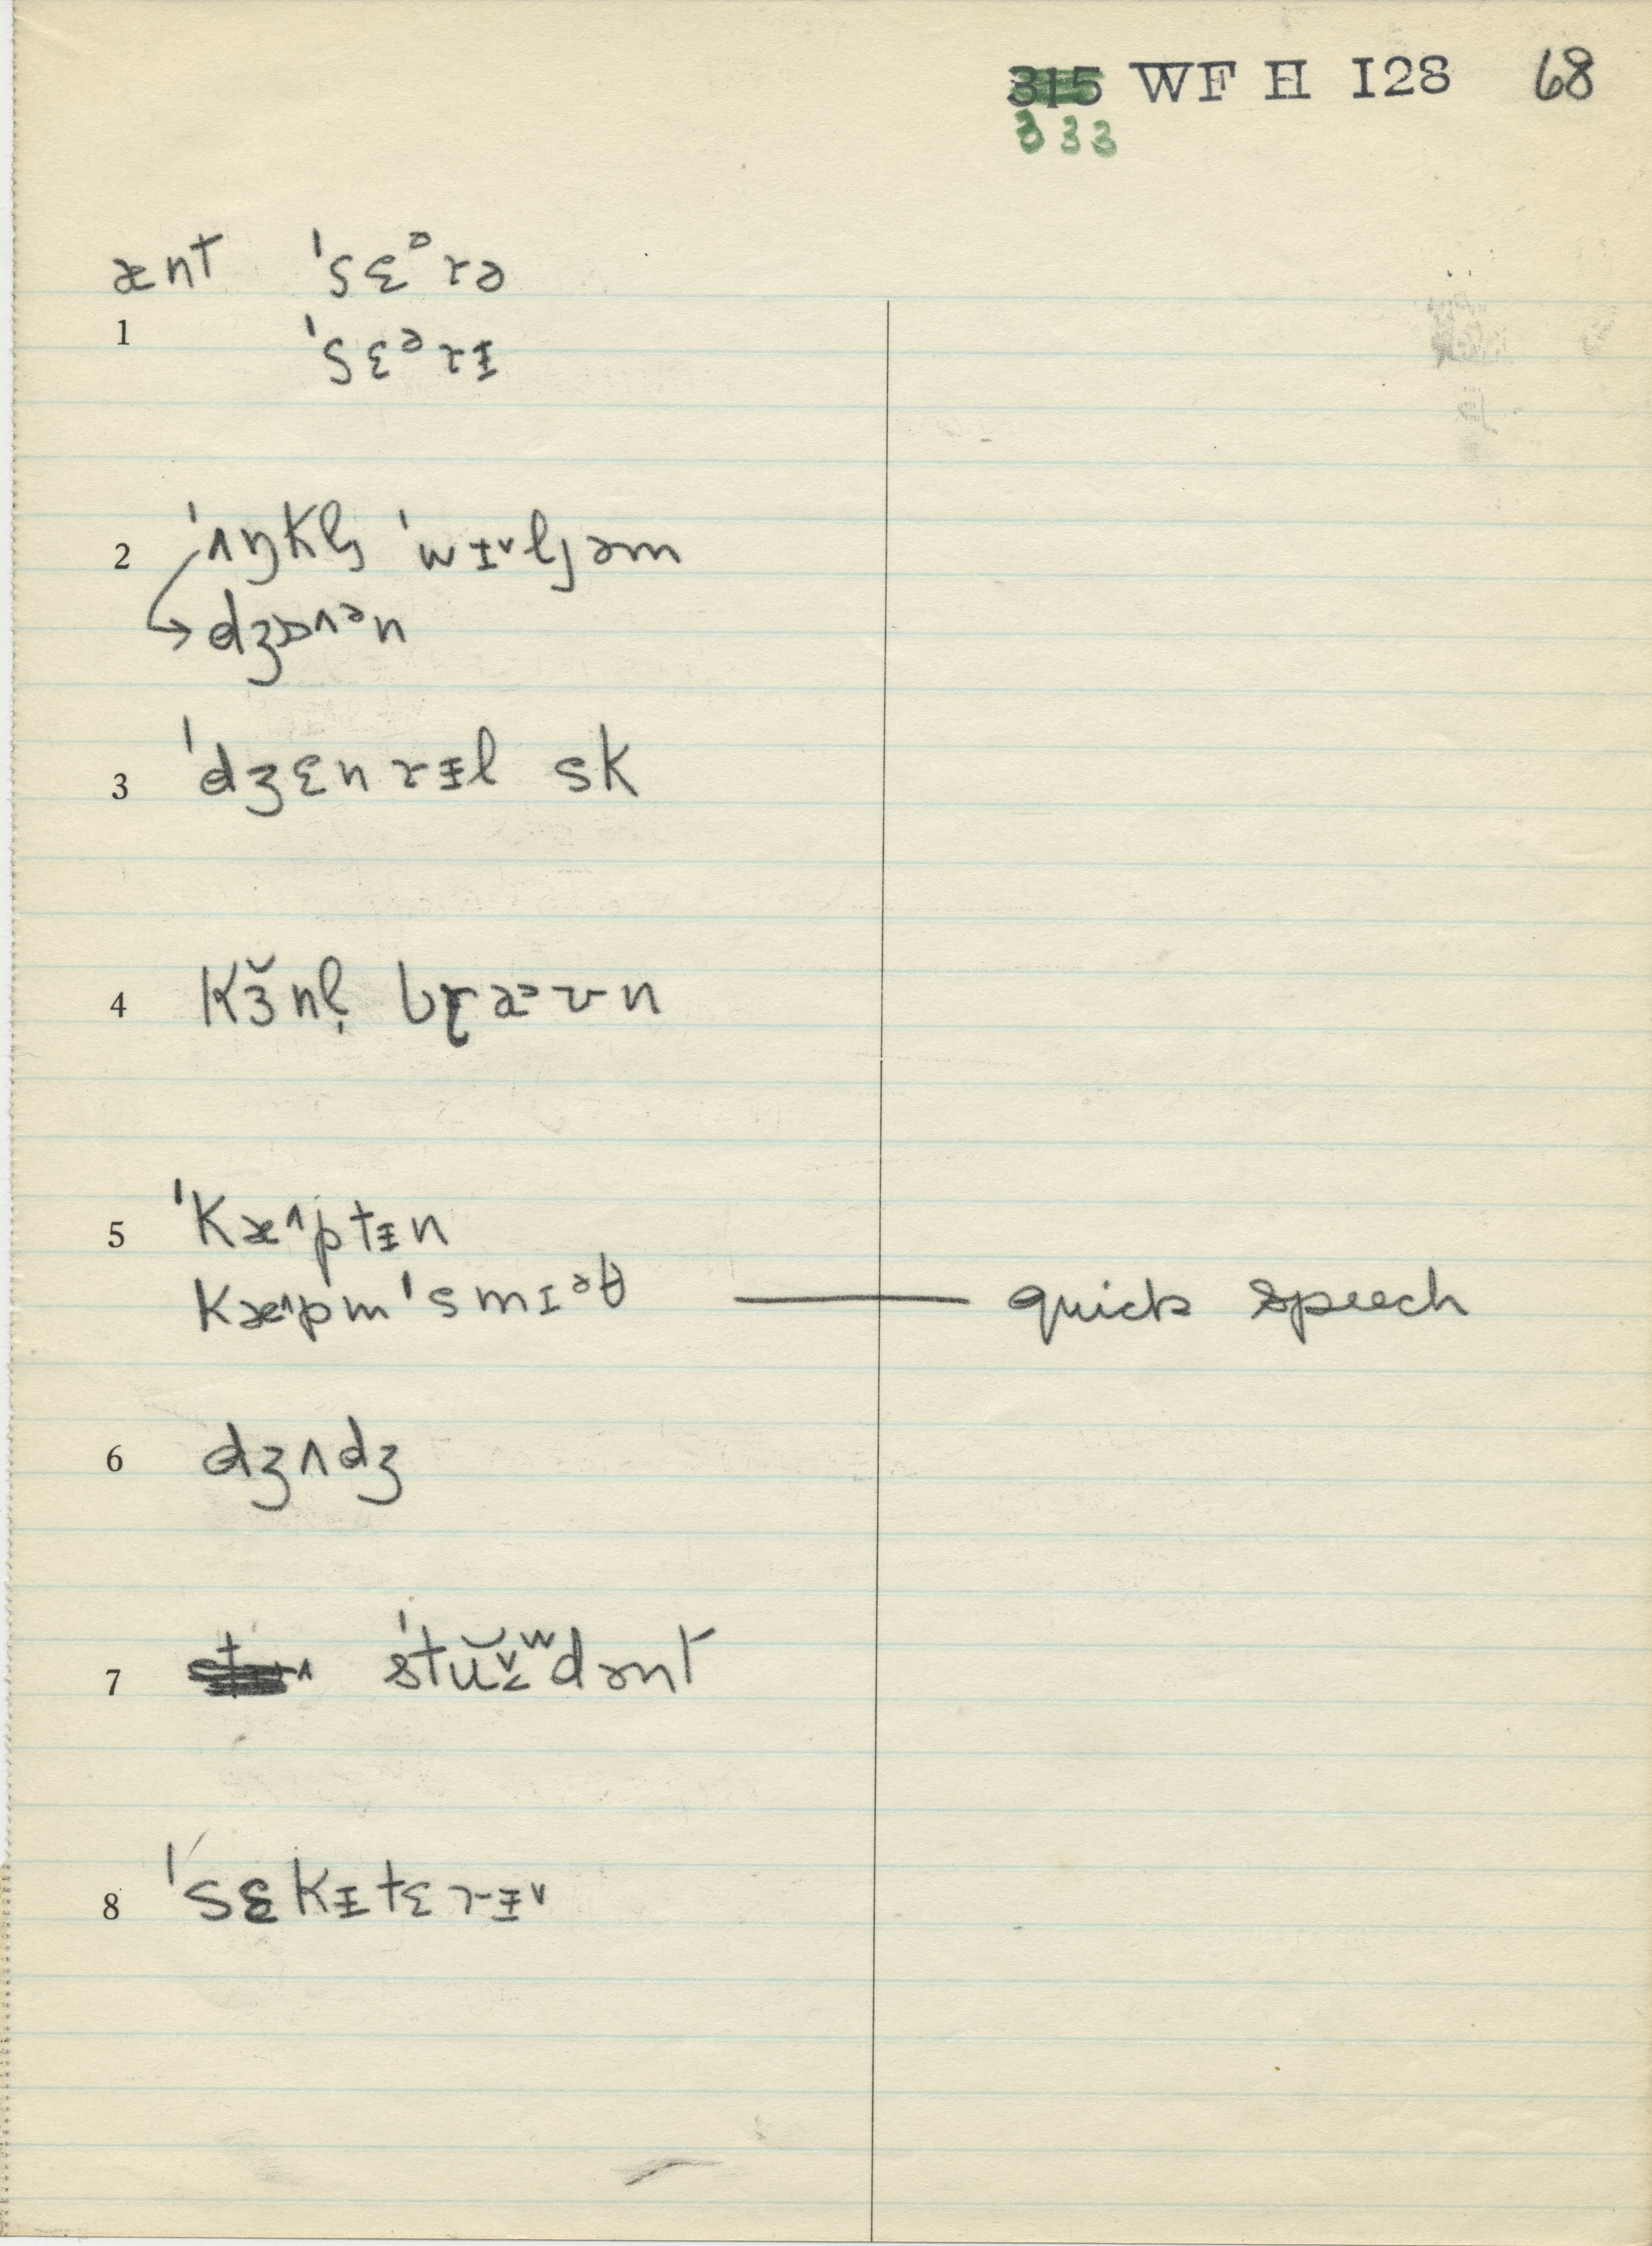 315 WF H 128 68
333
ænt ˈsɛᵊrə
1 ˈsɛᵊrɨ
2 ˈʌŋkl̩ ˈwɪ˅ljəm
→ dʒɒ^ᵊn
3 ˈdʒɛnrɨl sk
4 kɜ̆nl̩ bræᵊʊn
5 ˈkæ^ptɨn
kæ^pm ˈsmɪᵊθ — quick speech
6 dʒʌdʒ
7 ˈstŭ˅˂ʷdənt
8 ˈsɛkɨtɛrɨ˅